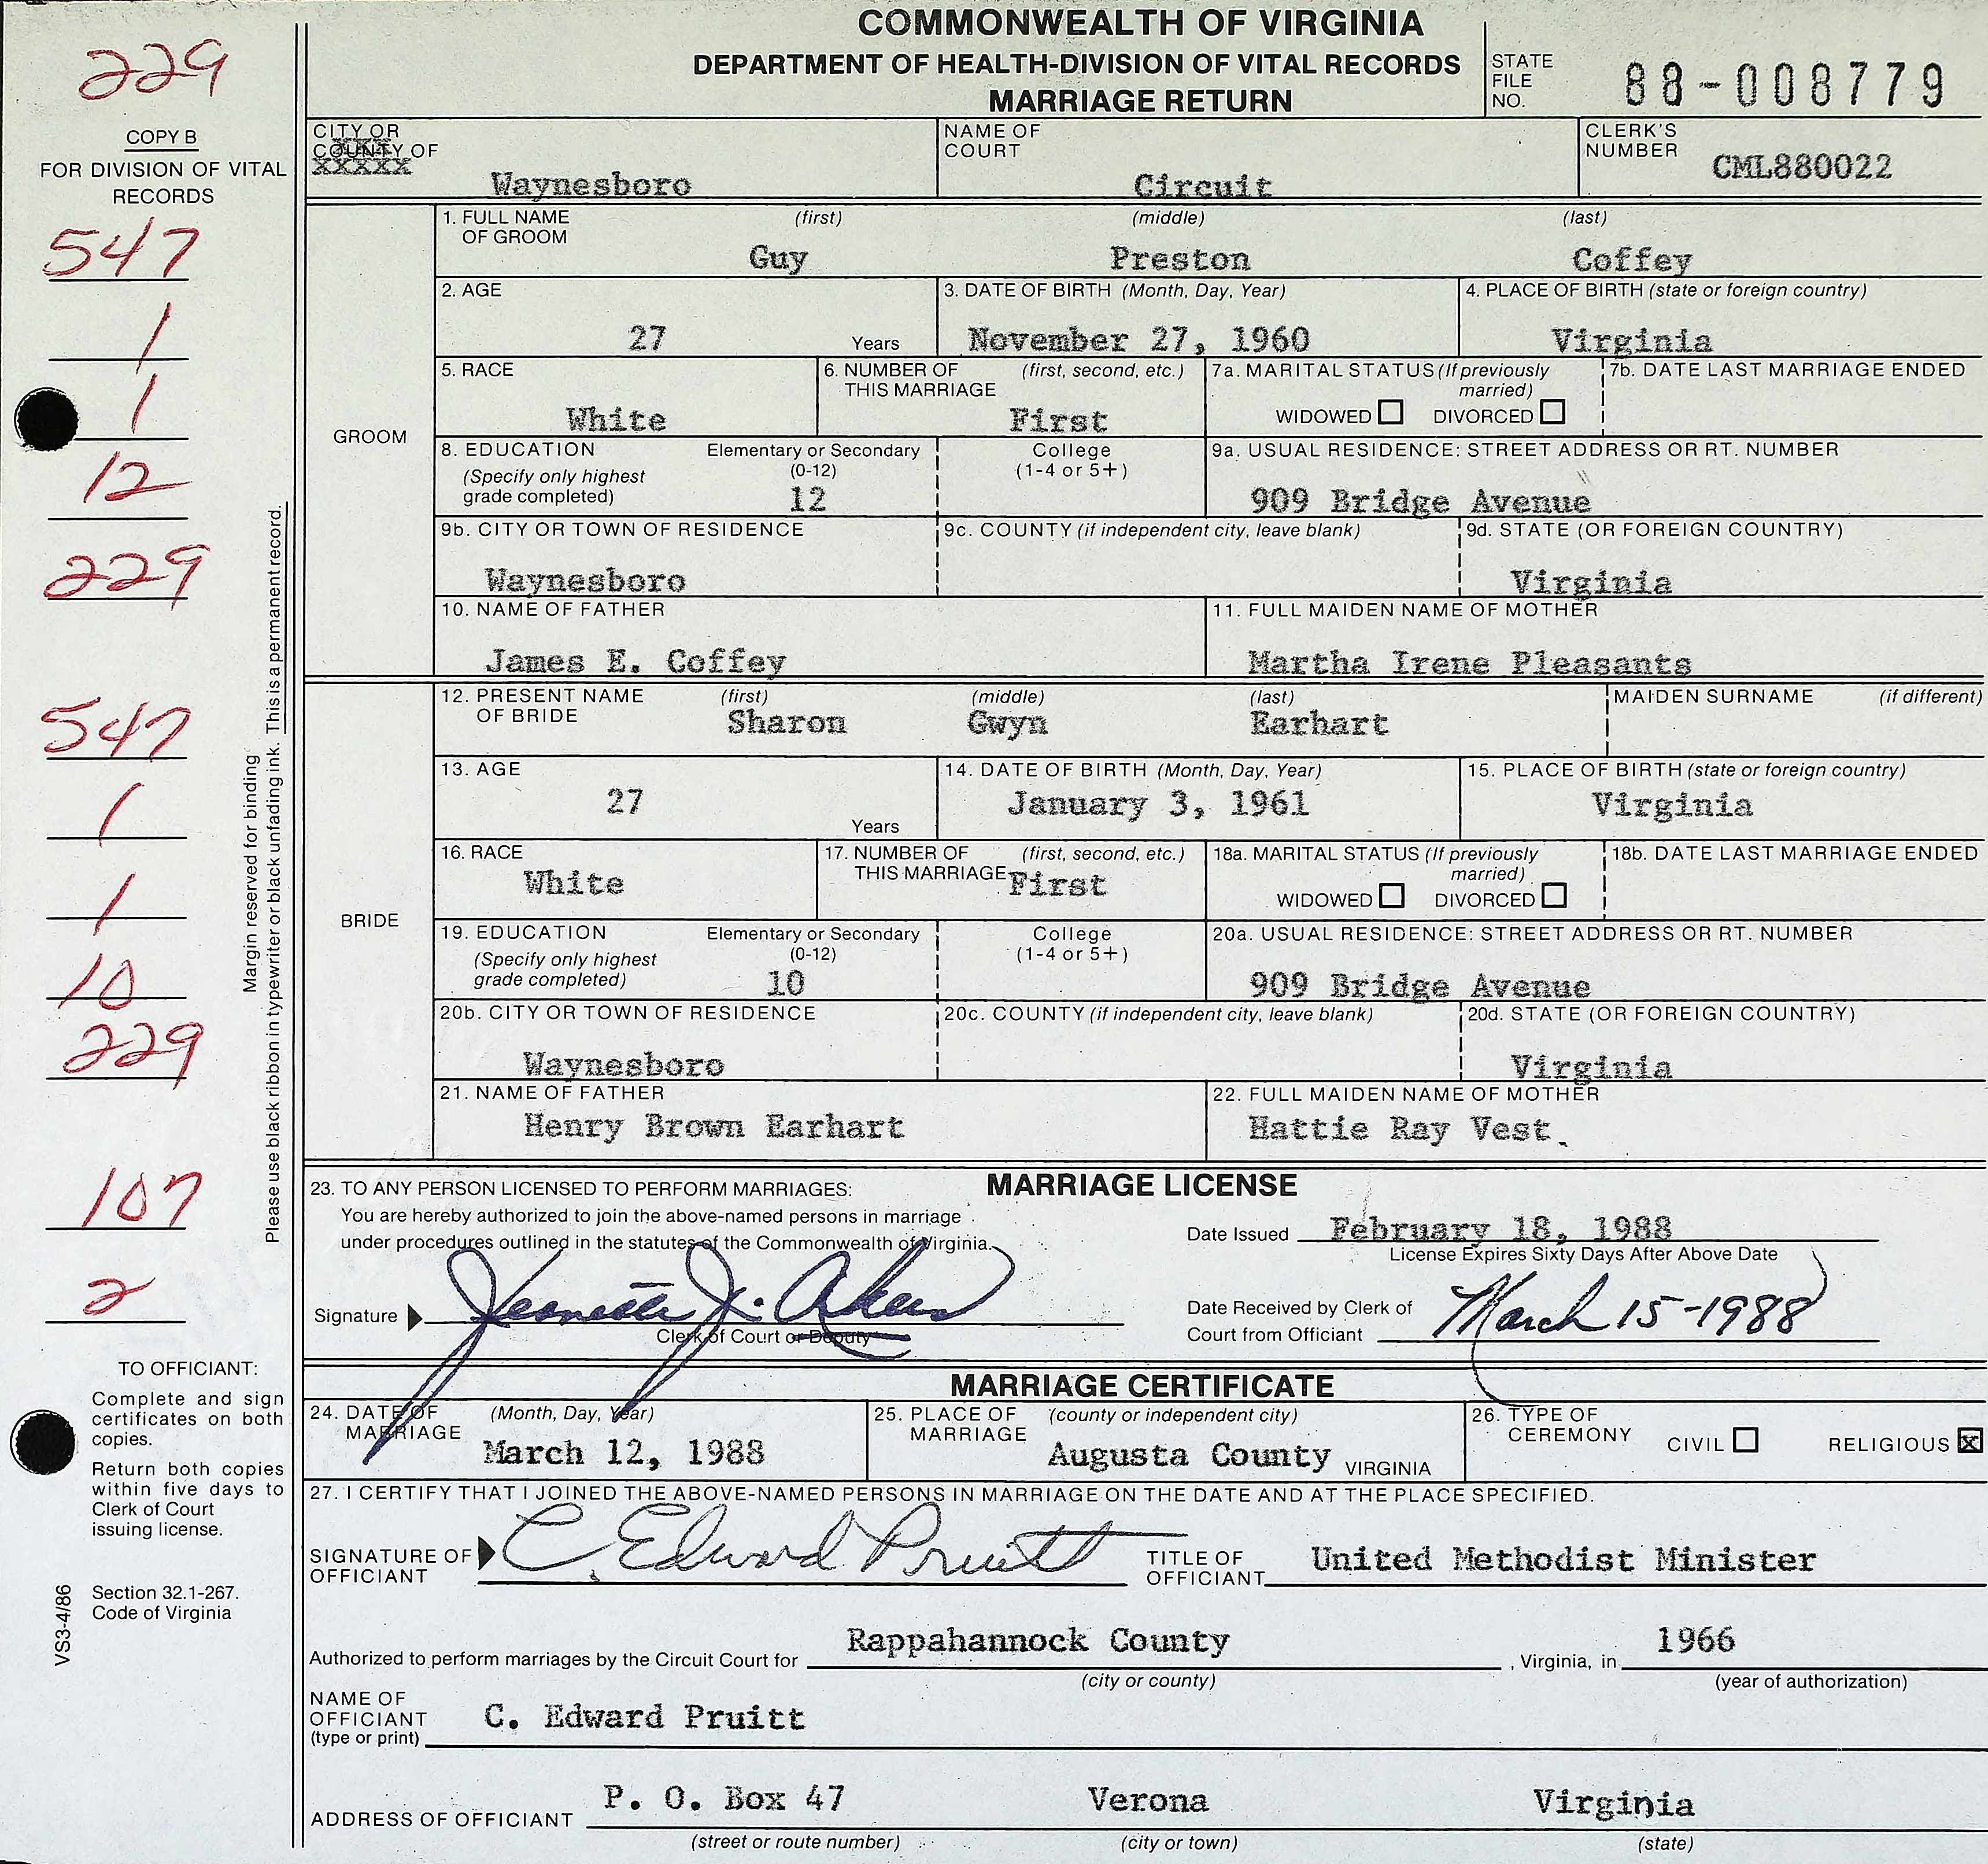 COMMONWEALTH OF VIRGINIA
DEPARTMENT OF HEALTH-DIVISION OF VITAL RECORDS
MARRIAGE RETURN
STATE FILE NO. 88-008779
229
COPY B
FOR DIVISION OF VITAL RECORDS
547
1
1
12
229
547
1
1
10
229
107
2
Margin reserved for binding
Please use black ribbon in typewriter or black unfading ink. This is a permanent record.
TO OFFICIANT:
Complete and sign
certificates on both
copies.
Return both copies
within five days to
Clerk of Court
issuing license.
Section 32.1-267.
Code of Virginia
VS3-4/86
CITY OR COUNTY OF Waynesboro
NAME OF COURT Circuit
CLERK'S NUMBER CML880022
GROOM
1. FULL NAME OF GROOM (first) Guy (middle) Preston (last) Coffey
2. AGE 27 Years
3. DATE OF BIRTH (Month, Day, Year) November 27, 1960
4. PLACE OF BIRTH (state or foreign country) Virginia
5. RACE White
6. NUMBER OF THIS MARRIAGE (first, second, etc.) First
7a. MARITAL STATUS (If previously married) WIDOWED DIVORCED
7b. DATE LAST MARRIAGE ENDED
8. EDUCATION (Specify only highest grade completed) Elementary or Secondary (0-12) 12 College (1-4 or 5+)
9a. USUAL RESIDENCE: STREET ADDRESS OR RT. NUMBER 909 Bridge Avenue
9b. CITY OR TOWN OF RESIDENCE Waynesboro
9c. COUNTY (if independent city, leave blank)
9d. STATE (OR FOREIGN COUNTRY) Virginia
10. NAME OF FATHER James E. Coffey
11. FULL MAIDEN NAME OF MOTHER Martha Irene Pleasants
BRIDE
12. PRESENT NAME OF BRIDE (first) Sharon (middle) Gwyn (last) Earhart MAIDEN SURNAME (if different)
13. AGE 27 Years
14. DATE OF BIRTH (Month, Day, Year) January 3, 1961
15. PLACE OF BIRTH (state or foreign country) Virginia
16. RACE White
17. NUMBER OF THIS MARRIAGE (first, second, etc.) First
18a. MARITAL STATUS (If previously married) WIDOWED DIVORCED
18b. DATE LAST MARRIAGE ENDED
19. EDUCATION (Specify only highest grade completed) Elementary or Secondary (0-12) 10 College (1-4 or 5+)
20a. USUAL RESIDENCE: STREET ADDRESS OR RT. NUMBER 909 Bridge Avenue
20b. CITY OR TOWN OF RESIDENCE Waynesboro
20c. COUNTY (if independent city, leave blank)
20d. STATE (OR FOREIGN COUNTRY) Virginia
21. NAME OF FATHER Henry Brown Earhart
22. FULL MAIDEN NAME OF MOTHER Hattie Ray Vest
MARRIAGE LICENSE
23. TO ANY PERSON LICENSED TO PERFORM MARRIAGES:
You are hereby authorized to join the above-named persons in marriage
under procedures outlined in the statutes of the Commonwealth of Virginia.
Date Issued February 18, 1988
License Expires Sixty Days After Above Date
Signature Jeanette J. Akers
Clerk of Court or Deputy
Date Received by Clerk of Court from Officiant March 15-1988
MARRIAGE CERTIFICATE
24. DATE OF MARRIAGE (Month, Day, Year) March 12, 1988
25. PLACE OF MARRIAGE (county or independent city) Augusta County VIRGINIA
26. TYPE OF CEREMONY CIVIL RELIGIOUS X
27. I CERTIFY THAT I JOINED THE ABOVE-NAMED PERSONS IN MARRIAGE ON THE DATE AND AT THE PLACE SPECIFIED.
SIGNATURE OF OFFICIANT C. Edward Pruitt
TITLE OF OFFICIANT United Methodist Minister
Authorized to perform marriages by the Circuit Court for Rappahannock County, Virginia, in 1966
(city or county) (year of authorization)
NAME OF OFFICIANT (type or print) C. Edward Pruitt
ADDRESS OF OFFICIANT P. O. Box 47 Verona Virginia
(street or route number) (city or town) (state)